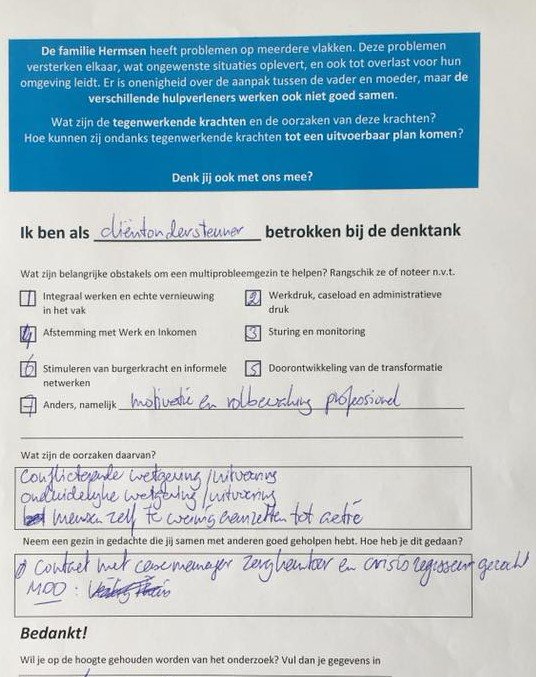 De familie Hermsen heeft problemen op meerdere vlakken. Deze problemen
versterken elkaar, wat ongewenste situaties oplevert, en ook tot overlast voor hun
omgeving leidt. Er is onenigheid over de aanpak tussen de vader en moeder, maar de
verschillende hulpverleners werken ook niet goed samen.
Wat zijn de tegenwerkende krachten en de oorzaken van deze krachten?
Hoe kunnen zij ondanks tegenwerkende krachten tot een uitvoerbaar plan komen?
Denk jij ook met ons mee?
Ik ben als cliëntondersteuner betrokken bij de denktank
Wat zijn belangrijke obstakels om een multiprobleemgezin te helpen? Rangschik ze of noteer n.v.t.
1 Integraal werken en echte vernieuwing
in het vak
2 Werkdruk, caseload en administratieve
druk
4 Afstemming met Werk en Inkomen
3 Sturing en monitoring
6 Stimuleren van burgerkracht en informele
netwerken
5 Doorontwikkeling van de transformatie
7 Anders, namelijk motivatie en rolbewaking professional
Wat zijn de oorzaken daarvan?
Conflicterende wetgeving/uitvoering
onduidelijke wetgeving/uitvoering
mensen zelf te weinig aanzetten tot actie
Neem een gezin in gedachte die jij samen met anderen goed geholpen hebt. Hoe heb je dit gedaan?
Contact met casemanager zorgkantoor en crisisregisseur gezocht
MDO :
Bedankt!
Wil je op de hoogte gehouden worden van het onderzoek? Vul dan je gegevens in